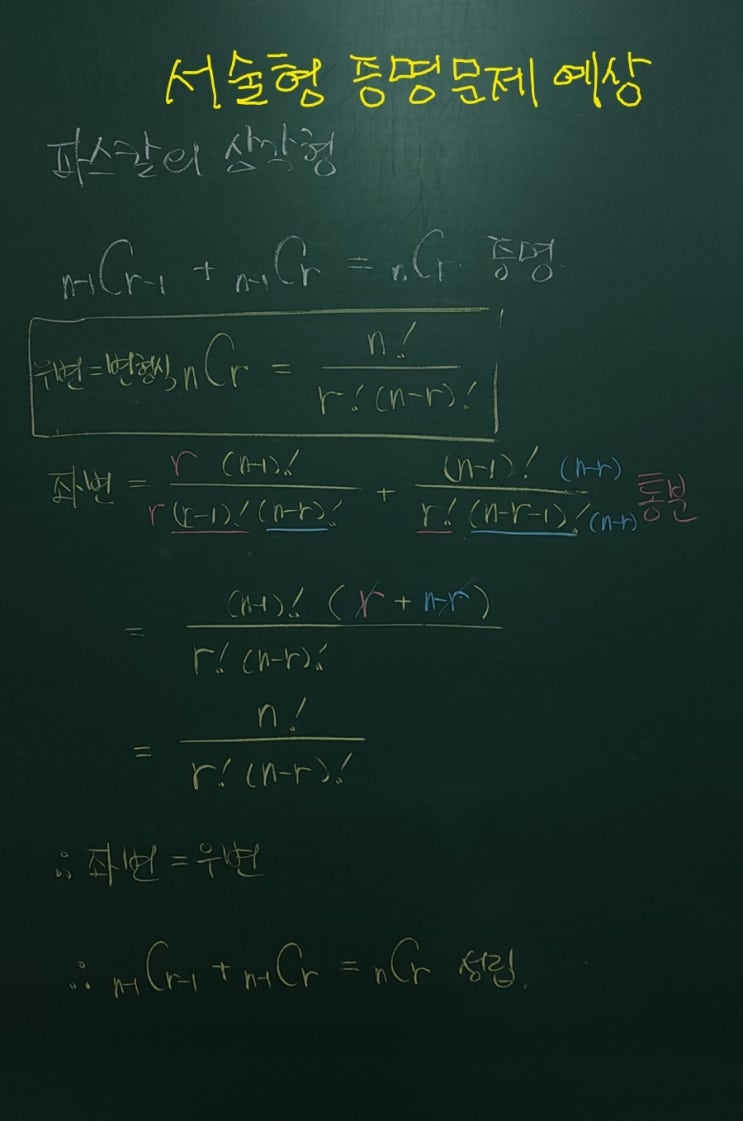 서술형 증명문제 예상
파스칼의 삼각형
n-1Cr-1 + n-1Cr = nCr 증명.
우변=변형식 nCr = n! / r!(n-r)!
좌변 = r (n-1)! / r(r-1)!(n-r)! + (n-1)! (n-r) / r!(n-r-1)!(n-r) 통분
= (n-1)! (r + n-r) / r!(n-r)!
= n! / r!(n-r)!
∴ 좌변 = 우변
∴ n-1Cr-1 + n-1Cr = nCr 성립.